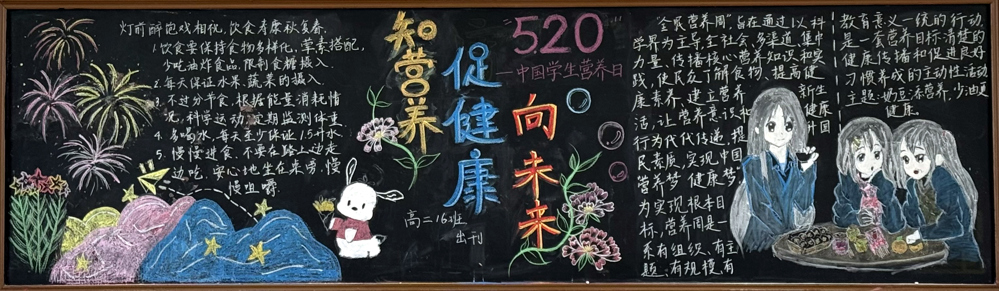 灯前醉饱戏相祝,饮食寿康秋复春.
1.饮食要保持食物多样化,荤素搭配,
少吃油炸食品,限制食糖摄入.
2.每天保证水果,蔬菜的摄入.
3.不过分节食,根据能量消耗情
况,科学运动,定期监测体重.
4.多喝水,每天至少保证1.5升水.
5.慢慢进食,不要在路上边走
边吃,安心地坐在桌旁,慢
慢咀嚼
知营养
促健康
高二16班
出刊
"520"
—中国学生营养日
向未来
"全民营养周"旨在通过以科
学界为主导,全社会,多渠道,集中
力量、传播核心营养知识和实
践,使民众了解食物、提高健
康素养、建立营养新生
活,让营养意识和健康
行为代代传递,提
民素质,实现中国
营养梦 健康梦
为实现根本目
标,营养周是一
系有组织、有主
题、有规模,有
教育意义一统的行动,
是一套营养目标清楚的
健康传播和促进良好
习惯养成的主动性活动
主题:奶豆添营养,少油更
健康